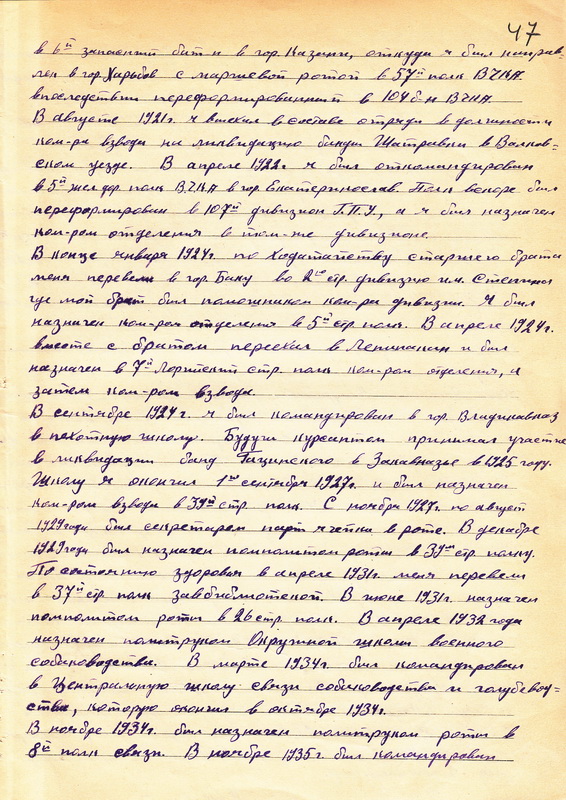 47
в 6й запасный бат-н в гор. Казань, откуда я был направ-
лен в гор. Харьков с маршевой ротой в 57й полк ВЧКА
впоследствии переформированный в 104 б-н ВЧКА
В августе 1921г. я выехал в составе отряда в должности
ком-ра взвода на ликвидацию банды Шатравки в Валков-
ском уезде. В апреле 1922г я был откомандирован
в 5й жел.дор. полк ВЧКА в гор. Екатеринослав. Полк вскоре был
переформирован в 107й дивизион Г.П.У., а я был назначен
ком-ром отделения в том-же дивизионе.
В конце января 1924г. по ходатайству старшего брата
меня перевели в гор. Баку во 2ю стр. дивизию им. Степина
где мой брат был помощником ком-ра дивизии. Я был
назначен ком-ром отделения в 5й стр. полк. В апреле 1924г.
вместе с братом переехал в Ленинакан и был
назначен в 7й стр. полк ком-ром отделения, а
затем ком-ром взвода.
В сентябре 1924г. я был командирован в гор. Владикавказ
в пехотную школу. Будучи курсантом принимал участие
в ликвидации банд Гацинского в Закавказье в 1925 году.
Школу я окончил 1го сентября 1927г. и был назначен
ком-ром взвода в 39й стр. полк. С ноября 1927г. по август
1929 года был секретарем парт ячейки в роте. В декабре
1929 года был назначен помполитом роты в 39м стр. полку.
По состоянию здоровья в апреле 1931г. меня перевели
в 37й стр. полк завбиблиотекой. В июне 1931г. назначен
помполитом роты в 26 стр. полк. В апреле 1932 года
назначен политруком Окружной школы военного
собаководства. В марте 1934г. был командирован
в Центральную школу связи собаководства и голубевод-
ства, которую окончил в октябре 1934г.
В ноябре 1934г. был назначен политруком роты в
8й полк связи. В ноябре 1935г. был командирован